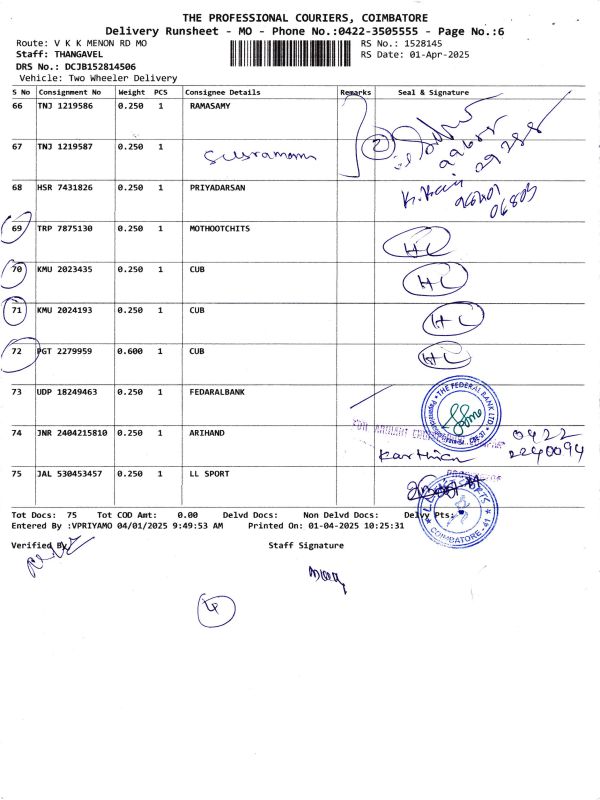 THE PROFESSIONAL COURIERS, COIMBATORE
Delivery Runsheet - MO - Phone No.:0422-3505555 - Page No.:6
Route: V K K MENON RD MO
RS No.: 1528145
Staff: THANGAVEL
RS Date: 01-Apr-2025
DRS No.: DCJB152814506
Vehicle: Two Wheeler Delivery
S No Consignment No Weight PCS Consignee Details Remarks Seal & Signature
66 TNJ 1219586 0.250 1 RAMASAMY
2
67 TNJ 1219587 0.250 1
68 HSR 7431826 0.250 1 PRIYADARSAN
69 TRP 7875130 0.250 1 MOTHOOTCHITS HC
70 KMU 2023435 0.250 1 CUB HC
71 KMU 2024193 0.250 1 CUB HC
72 PGT 2279959 0.600 1 CUB HC
73 UDP 18249463 0.250 1 FEDARALBANK
THE FEDERAL BANK LTD.
74 JNR 2404215810 0.250 1 ARIHAND
Karthick 0422
2240094
75 JAL 530453457 0.250 1 LL SPORT
COIMBATORE - 41
Tot Docs: 75 Tot COD Amt: 0.00 Delvd Docs: Non Delvd Docs: Delvy Pts:
Entered By :VPRIYAMO 04/01/2025 9:49:53 AM Printed On: 01-04-2025 10:25:31
Verified By
Staff Signature